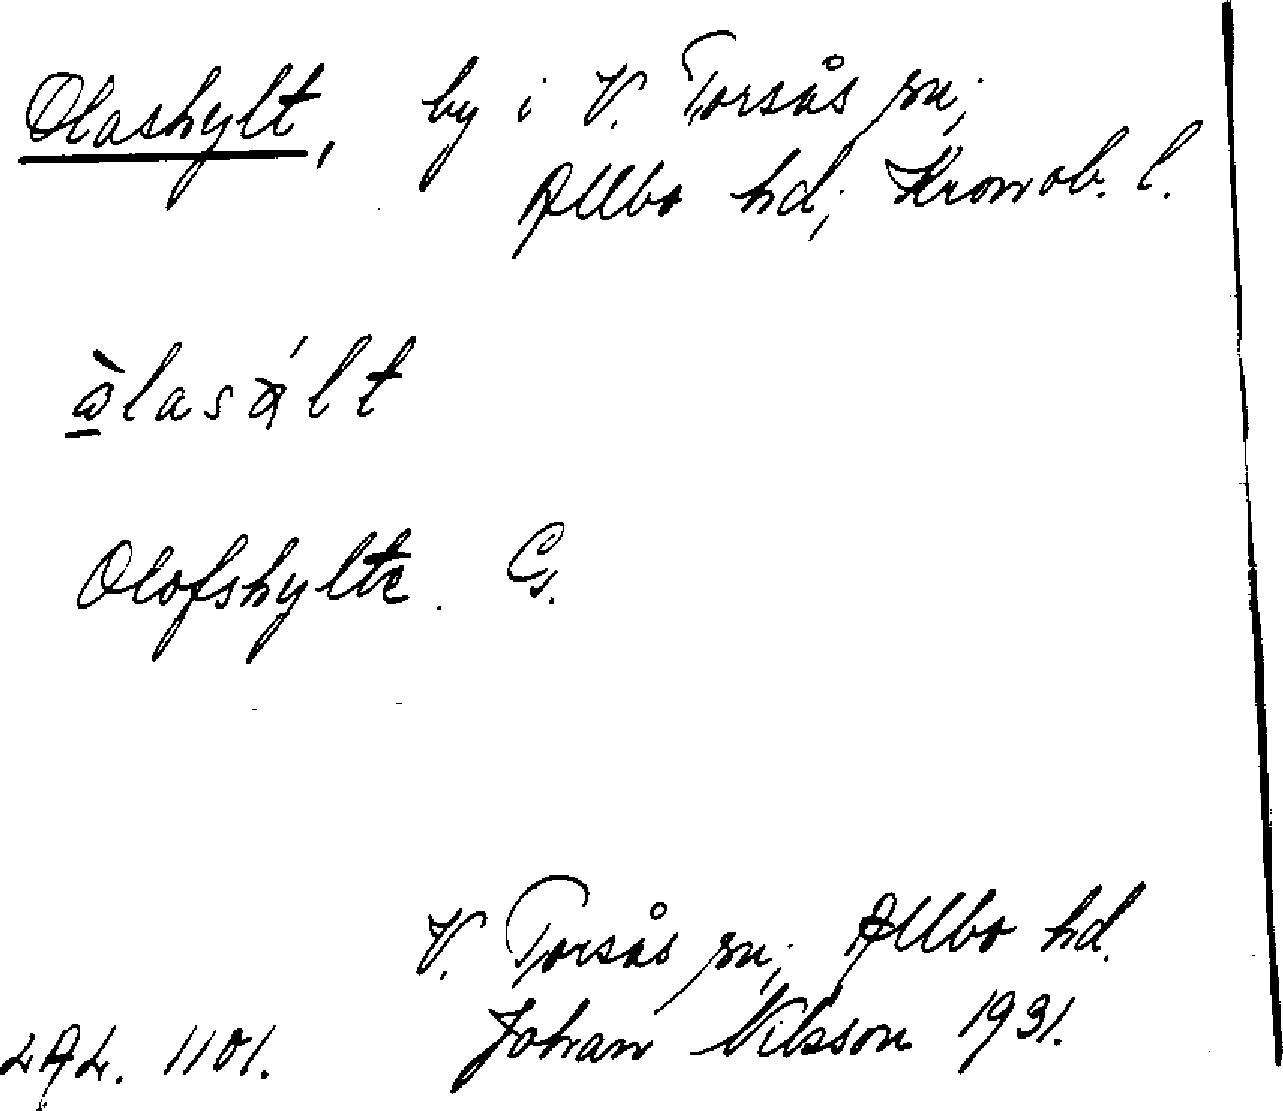 Olashylt, by i V. Torsås sn;
Allbo hd; Kronob. l.
Olofshylte. G.
V. Torsås sn; Allbo hd.
LAL. 1101. Johan Nilsson 1931.